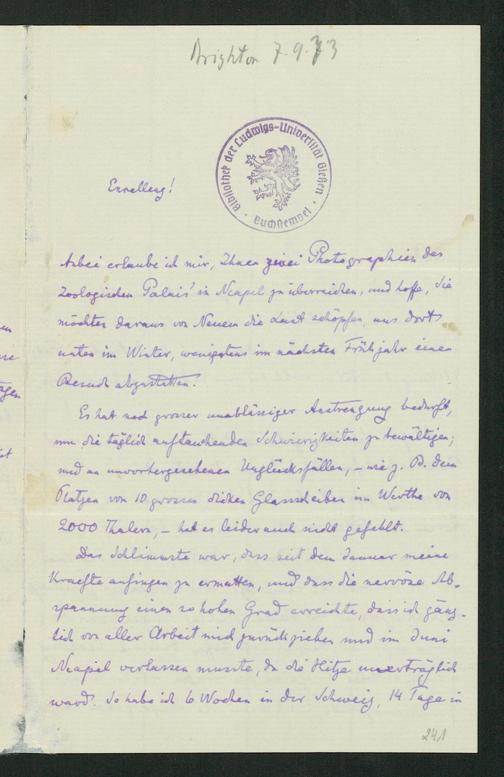 Brighton 7.9.73
Bibliothek der Ludwigs-Universität Gießen
· Buchstempel ·
Excellenz!
Anbei erlaube ich mir, Ihnen zwei Photographien des
Zoologischen Palais' in Neapel zu überreichen, und hoffe, Sie
möchten daraus von Neuem die Lust schöpfen, uns dort
unten im Winter, wenigstens im nächsten Frühjahr einen
Besuch abzustatten.
Es hat noch grosser unablässiger Anstrengung bedurft,
um die täglich auftauchenden Schwierigkeiten zu bewältigen;
und an unvorhergesehenen Unglücksfällen, – wie z. B. dem
Platzen von 10 grossen dicken Glasscheiben im Werthe von
2000 Thalern, – hat es leider auch nicht gefehlt.
Das Schlimmste war, dass seit dem Januar meine
Kraefte anfingen zu ermatten, und dass die nervöse Ab-
spannung einen so hohen Grad erreichte, dass ich gänz-
lich von aller Arbeit mich zurückziehen und im Juni
Neapel verlassen musste, da die Hitze unerträglich
ward. So habe ich 6 Wochen in der Schweiz, 14 Tage in
241